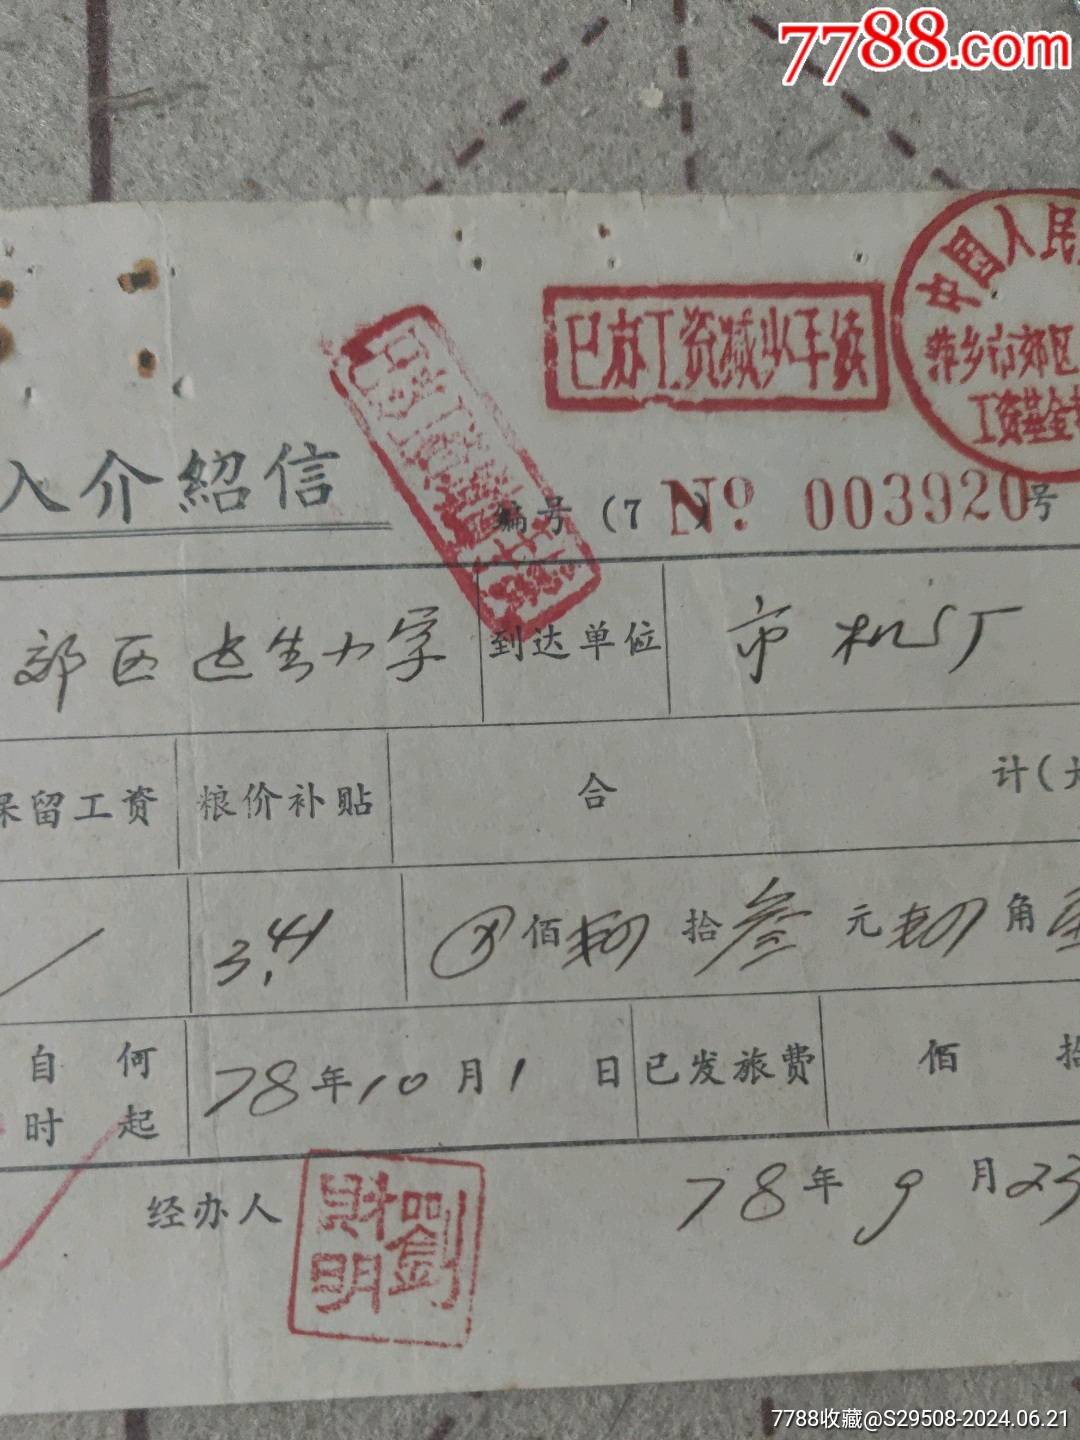 7788.com
中国人民
萍乡市郊区
工资基金
已办工资减少手续
入介紹信
编号(7 № 003920号
郊区 到达单位 市机厂
保留工资 粮价补贴 合 计(大
/ 3.41 佰 拾叁元 角
自何时起 78年10月1日 已发旅费 佰 拾
经办人 劉財明 78年9月23
7788收藏@S29508-2024.06.21